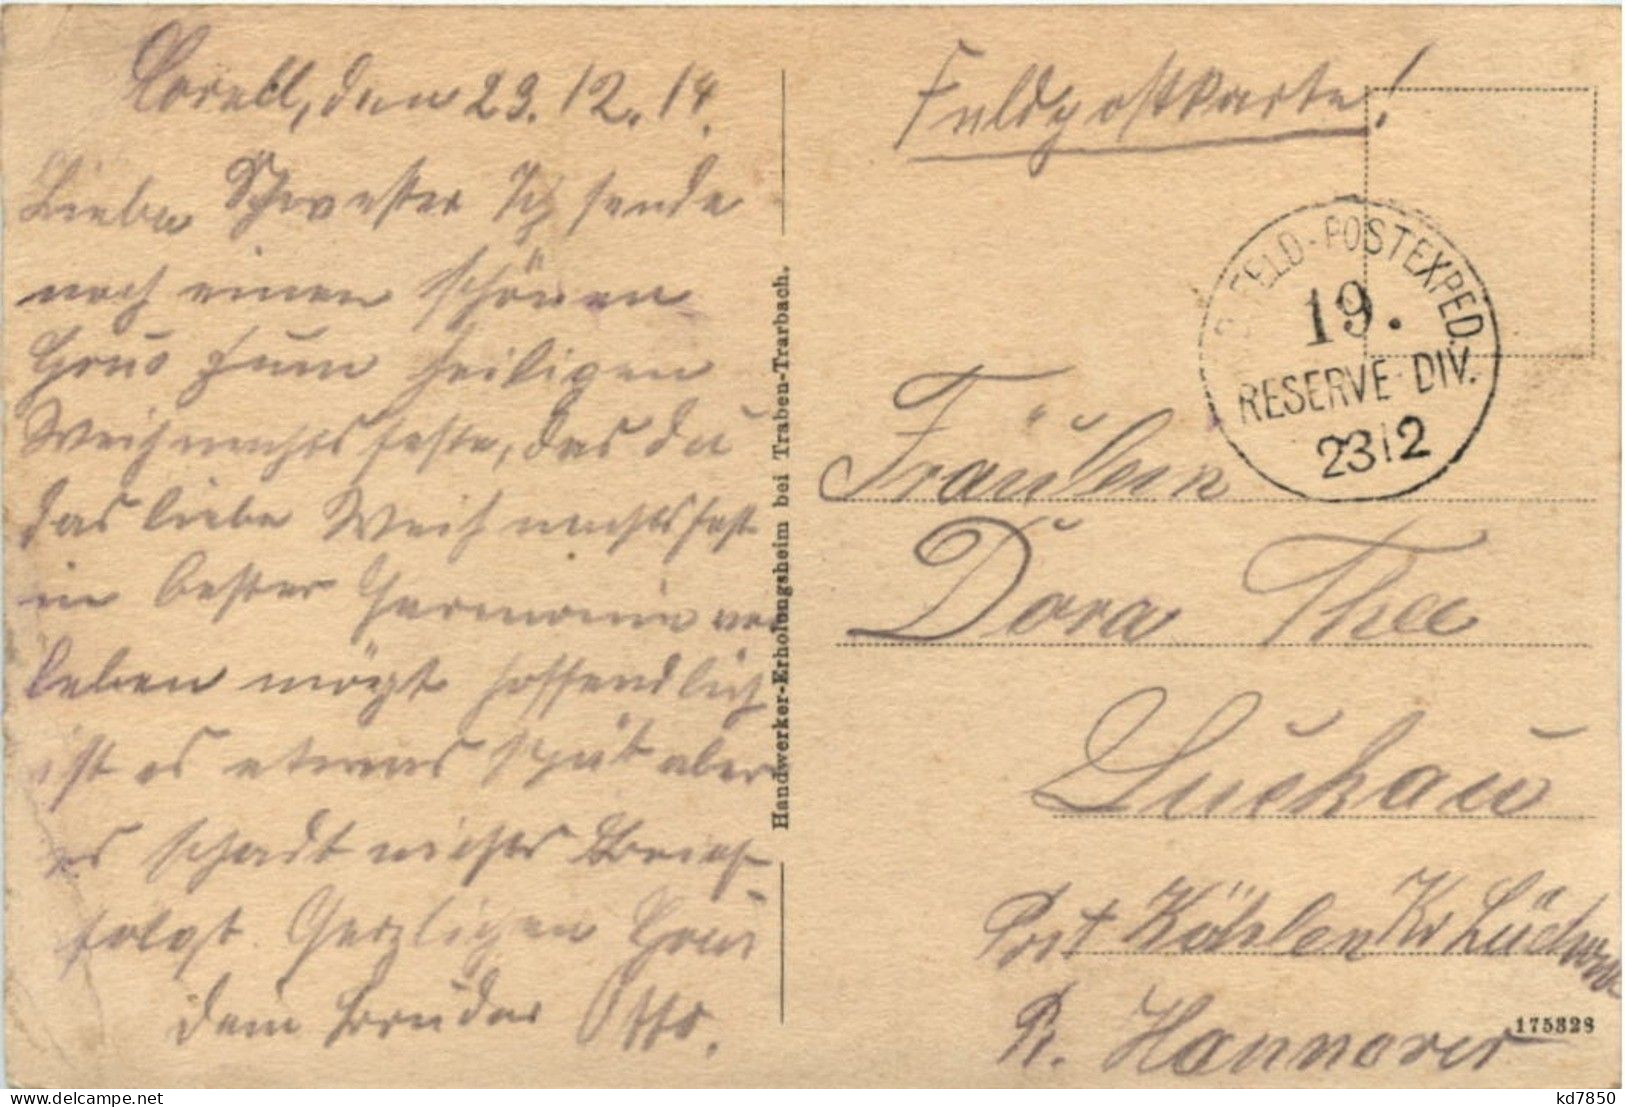 den 23.12.14.
Liebe Schwester Ich sende
noch einen schönen
Grus zum heiligen
Weihnachtsfeste, das du
das liebe Weihnachtsfest
in bester Harmonie ver
leben mögst hoffendlich
ist es etwas spät aber
es schadt nichts Brief
folgt. Herzlichen Grus
dein Bruder Otto.
Handwerker-Erholungsheim bei Traben-Trarbach.
Feldpostkarte!
FELD-POSTEXPED.
19.
RESERVE-DIV.
2312
Fräulein
Dora Thee
Luckau
Post Köhlen Kr Lüchow
Pr. Hannover
175328
kd7850